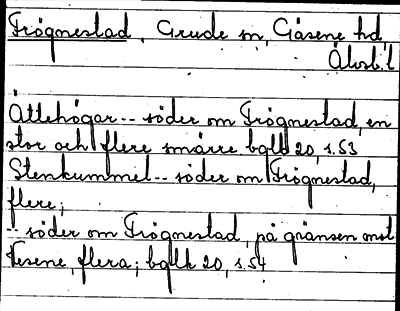 Frögnestad, Grude sn, Gäsene hd,
Älvsb. l
Ättehögar -- söder om Frögnestad, en
stor och flere smärre. bglb 20, s. 53
Stenkummel -- söder om Frögnestad,
flere;
-- söder om Frögnestad, på gränsen mot
Vesene, flera; bglb 20, s. 54